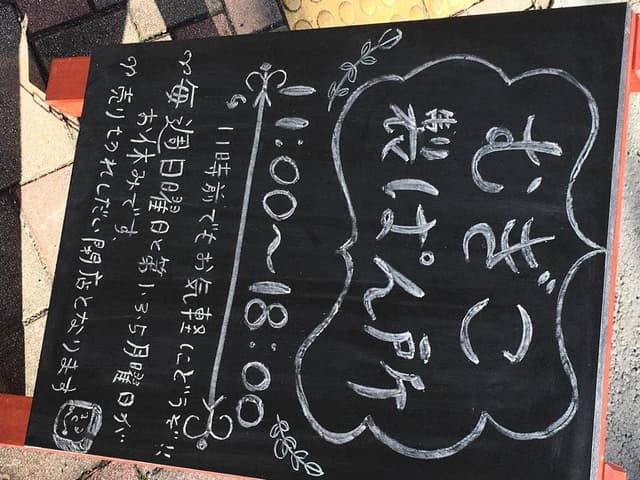 むぎつ
製ぱん所
11:00〜18:00
11時前でもお気軽にどうぞ!!
毎週日曜日と第1・3・5月曜日が
お休みです。
売りきれしだい閉店となります